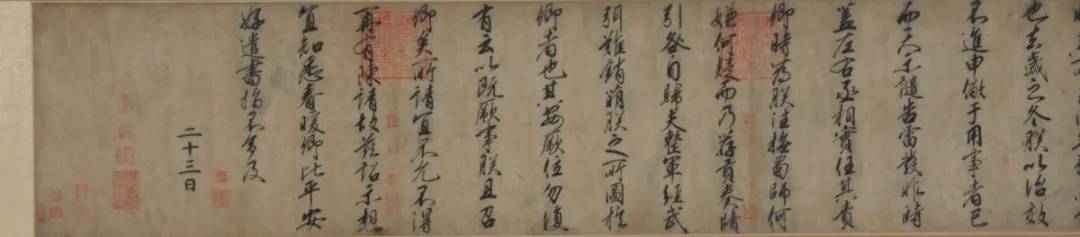 也去歲之冬朕以治效
不進申儆于用事者已
而天示譴告雷發非時
蓋左右丞相實任其責
卿時為朕往撫蜀師何
嫌何疑而乃荐貢奏牘
引咎自歸夫整軍經武
弭難銷萌朕之所圖於
卿者也其安厥位勿復
有云以既厥事朕且召
卿矣所請宜不允不得
再有陳請故茲詔示想
宜知悉春暖卿比平安
好遣書指不多及
二十三日